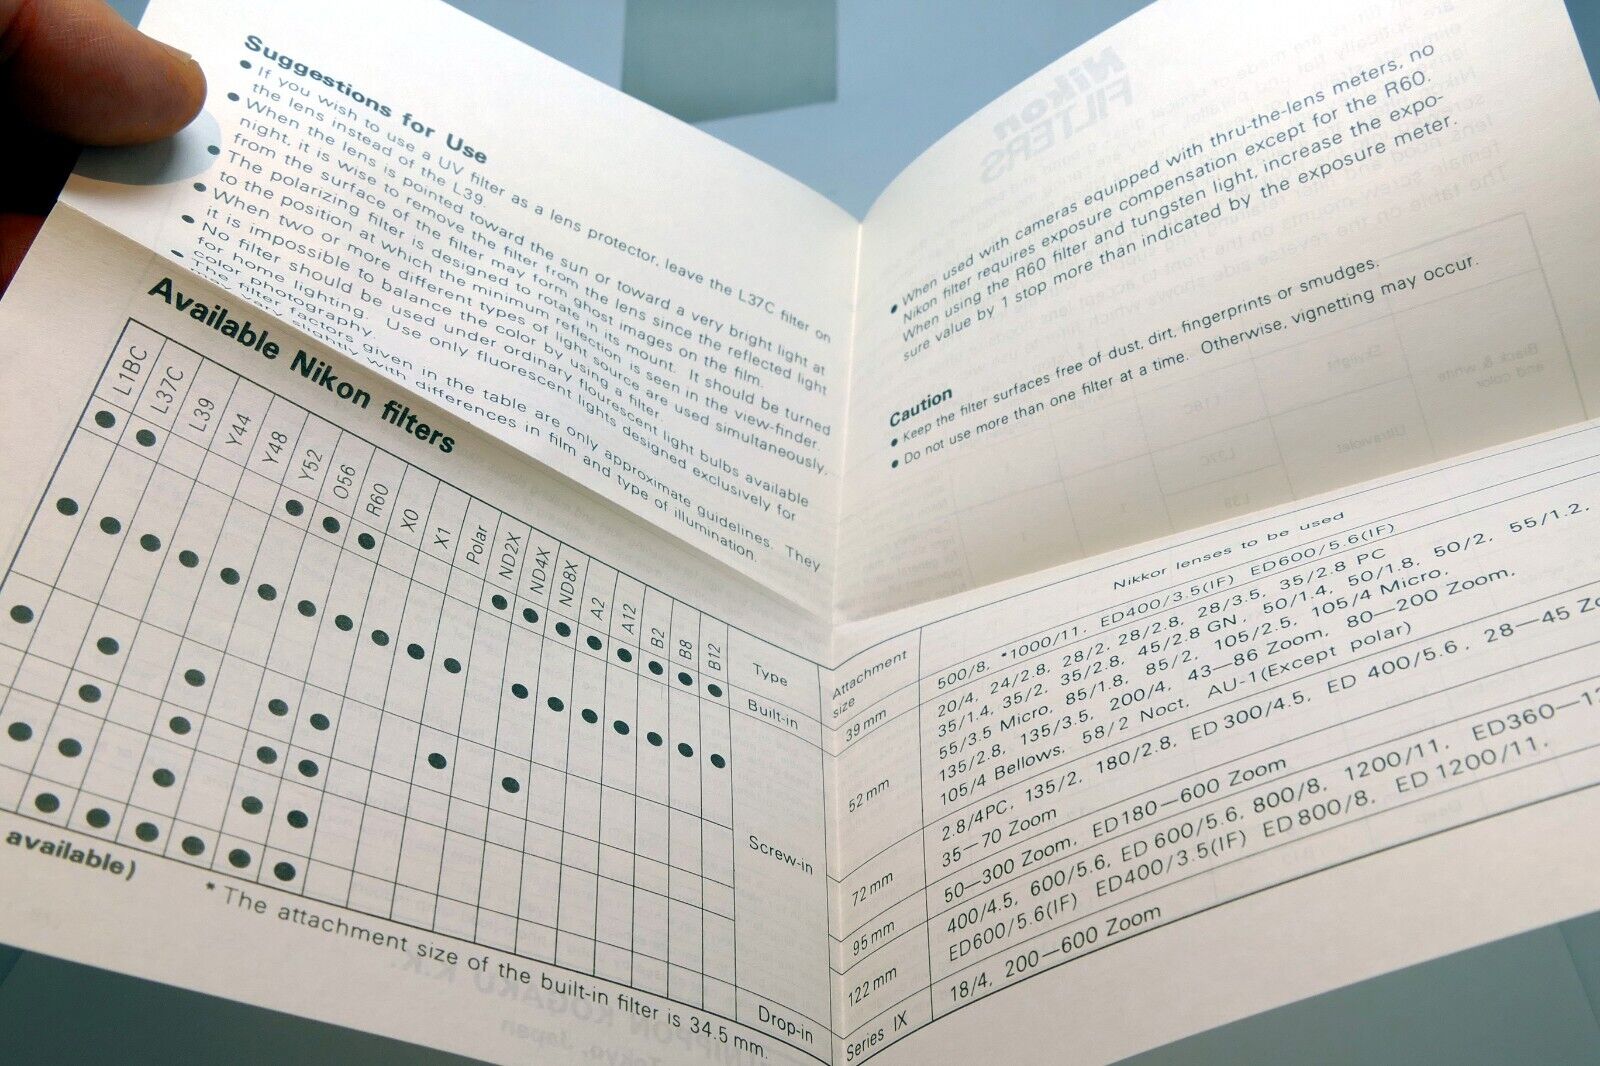 Suggestions for Use
● If you wish to use a UV filter as a lens protector, leave the L37C filter on
the lens instead of the L39.
● When the lens is pointed toward the sun or toward a very bright light at
night, it is wise to remove the filter from the lens since the reflected light
from the surface of the filter may form ghost images on the film.
● The polarizing filter is designed to rotate in its mount. It should be turned
to the position at which the minimum reflection is seen in the view-finder.
● When two or more different types of light source are used simultaneously,
it is impossible to balance the color by using a filter.
● No filter should be used under ordinary flourescent light bulbs available
for home lighting. Use only fluorescent lights designed exclusively for
color photography.
● The filter factors given in the table are only approximate guidelines. They
may vary slightly with differences in film and type of illumination.
● When used with cameras equipped with thru-the-lens meters, no
Nikon filter requires exposure compensation except for the R60.
When using the R60 filter and tungsten light, increase the expo-
sure value by 1 stop more than indicated by the exposure meter.
Caution
● Keep the filter surfaces free of dust, dirt, fingerprints or smudges.
● Do not use more than one filter at a time. Otherwise, vignetting may occur.
Available Nikon filters
L1BC L37C L39 Y44 Y48 Y52 O56 R60 X0 X1 Polar ND2X ND4X ND8X A2 A12 B2 B8 B12 Type
Built-in
Screw-in
Drop-in
Attachment
size
Nikkor lenses to be used
39 mm
500/8, *1000/11, ED400/3.5(IF) ED600/5.6(IF)
52 mm
20/4, 24/2.8, 28/2, 28/2.8, 28/3.5, 35/2.8 PC
35/1.4, 35/2, 35/2.8, 45/2.8 GN, 50/1.4, 50/1.8, 50/2, 55/1.2,
55/3.5 Micro, 85/1.8, 85/2, 105/2.5, 105/4 Micro,
135/2.8, 135/3.5, 200/4, 43—86 Zoom, 80—200 Zoom,
105/4 Bellows, 58/2 Noct, AU-1(Except polar)
72 mm
2.8/4PC, 135/2, 180/2.8, ED 300/4.5, ED 400/5.6, 28—45
35—70 Zoom
95 mm
50—300 Zoom, ED180—600 Zoom
122 mm
400/4.5, 600/5.6, ED 600/5.6, 800/8, 1200/11, ED360—
ED600/5.6(IF) ED400/3.5(IF) ED 800/8, ED 1200/11,
Series IX
18/4, 200—600 Zoom
available)
* The attachment size of the built-in filter is 34.5 mm.
Nikon
FILTERS